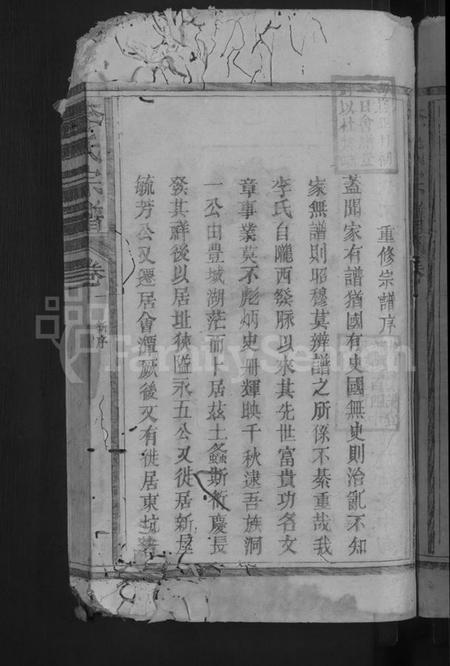 重修宗譜序
蓋聞家有譜猶國有史國無史則治亂不知
家無譜則昭穆莫辨譜之所係不綦重哉我
李氏自隴西發脉以來其先世富貴功名文
章事業莫不彪炳史冊輝映千秋逮吾族洞
一公由豊城湖茫而卜居茲土螽斯衍慶長
發其祥後以居址狹隘永五公又徙居新屋
毓芳公又遷居會潭厥後又有徙居東坑
李氏宗譜 卷 新序
FamilySearch